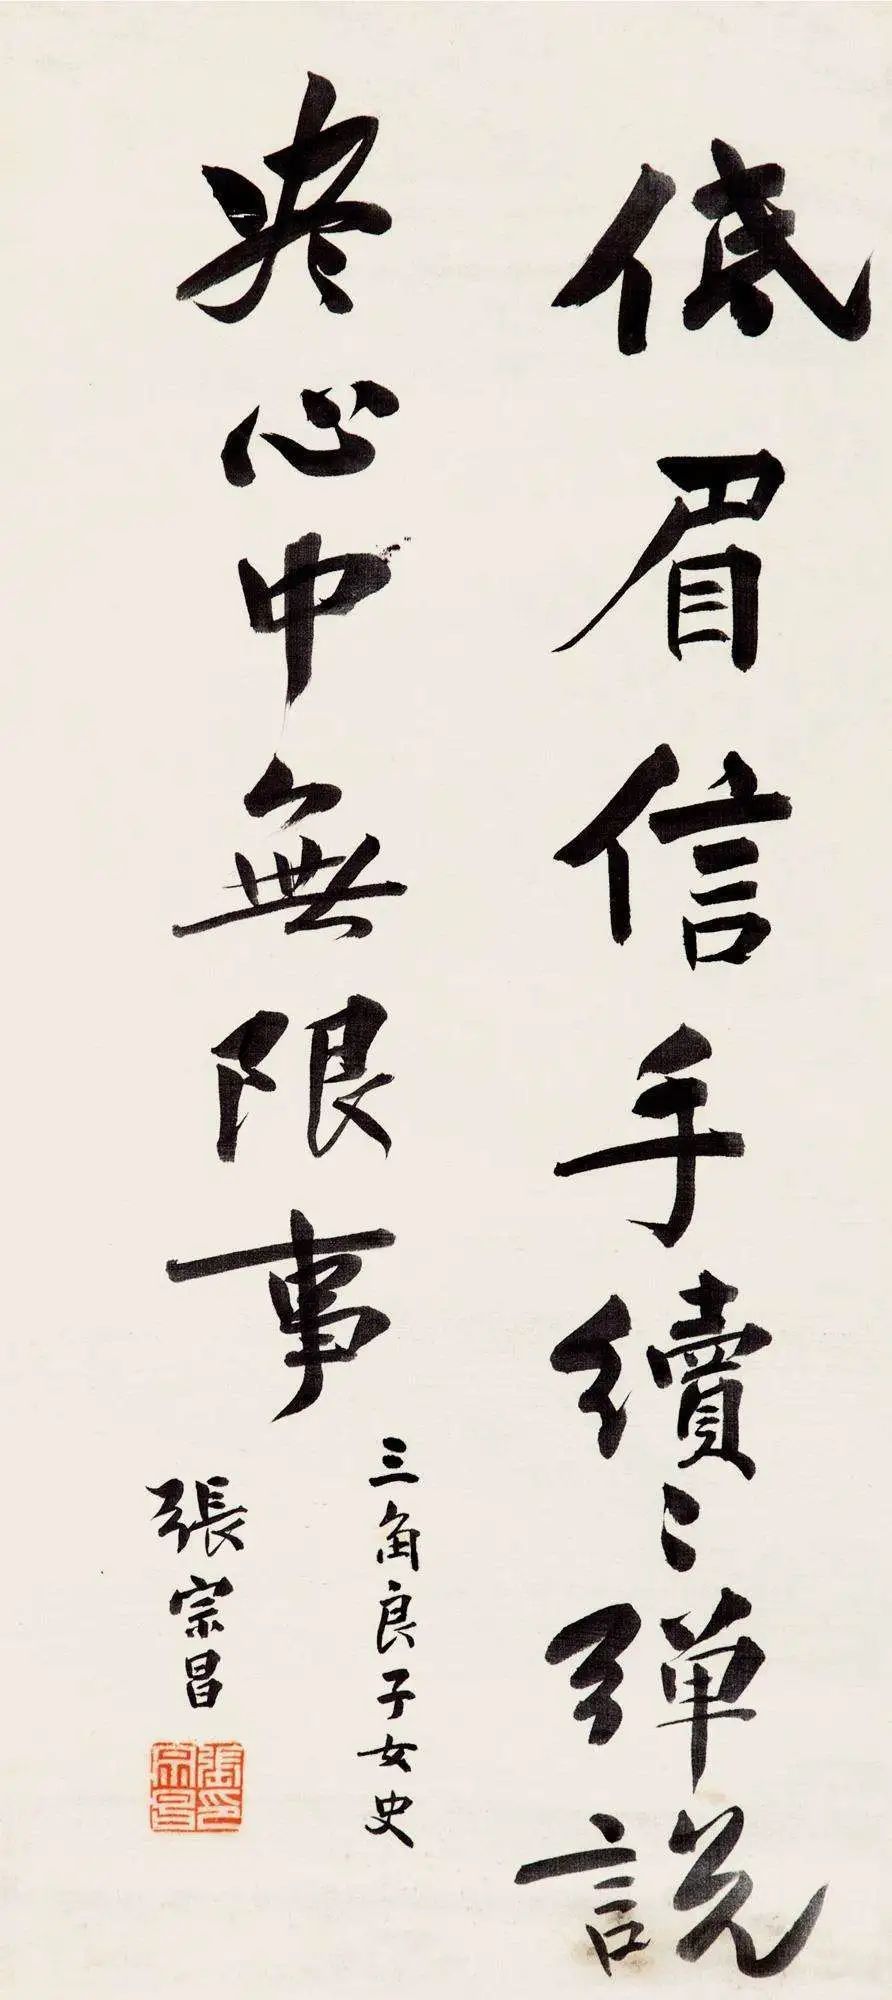 低眉信手續〻弾說
尽心中無限事
三角良子女史
張宗昌
張印宗昌